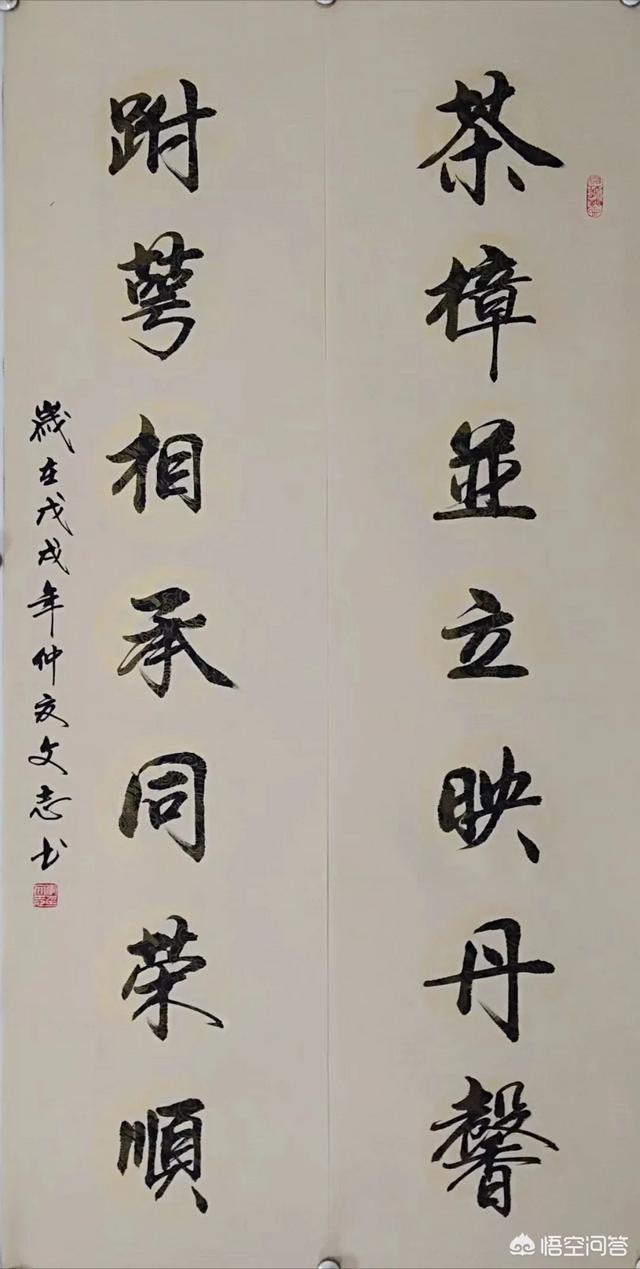 茶樟並立映丹馨
跗萼相承同荣順
歲在戊戌年仲夏文志书
悟空问答